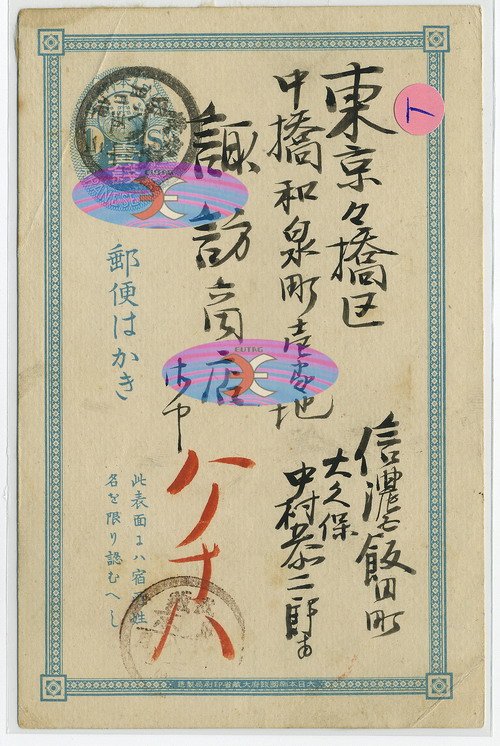 ト
東京々橋区
中橋和泉町壱番地
諏訪商店
御中
信濃国飯田町
大久保
中村恭二郎
ハノナハ
1 Sn
壹銭
郵便はかき
此表面にハ宿所姓
名を限り認むへし
EUTRG
EUTRG
大日本帝国政府大蔵省印刷局製造